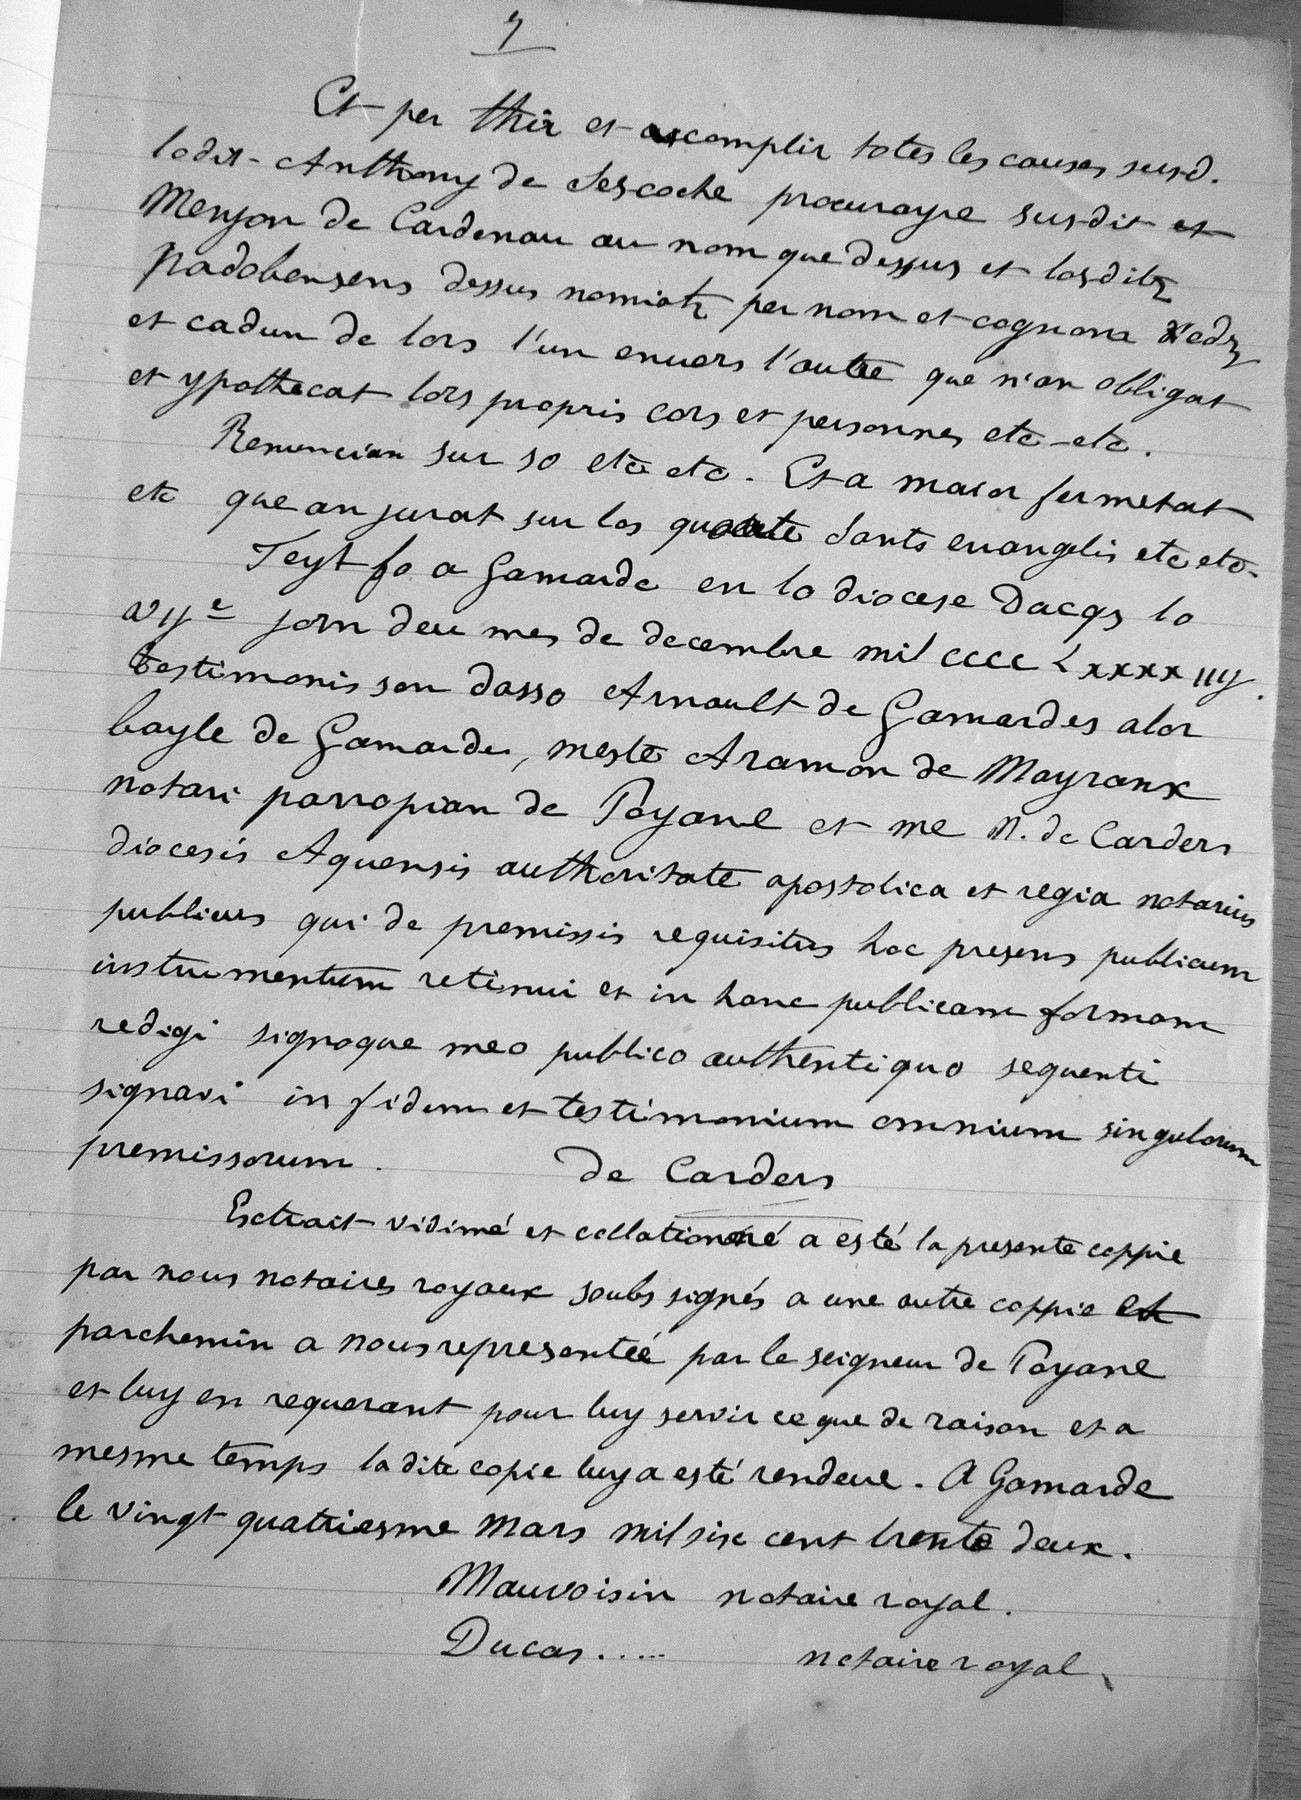 7
Et per thir et accomplir totes les causes susd.
lodit Anthony de Sescoche procurayre susdit et
Menjon de Cardenau au nom que dessus et losditz
padobensens dessus nomiatz per nom et cognom
et cadun de lors l'un enuers l'autre que n'an obligat
et ypothecat lors propris cors et personnes etc-etc.
Renuncian sur so etc etc. Et a maior fermetat
etc que an jurat sur los quoate Sants euangelis etc etc-
Feyt fo a Gamarde en lo diocese Dacqs lo
xvye jorn deu mes de decembre mil cccc Lxxxx iiy.
testimonis son dasso Arnault de Gamardes alor
bayle de Gamardes, meste Aramon de Mayranx
notari parropian de Poyane et me N. de Carders
diocesis Aquensis authoritate apostolica et regia notarius
publicus qui de premissis requisitus hoc presens publicum
instrumentum retinui et in hanc publicam formam
redigi signoque meo publico authentiquo sequenti
signavi in fidem et testimonium omnium singulorum
premissorum. de Carders
Extrait vidimé et collationné a esté la presente coppie
par nous notaires royaux soubs signés a une autre coppie en
parchemin a nous representée par le seigneur de Poyane
et luy en requerant pour luy servir ce que de raison et a
mesme temps la dite copie luy a esté rendeue. A Gamarde
le vingt quatriesme Mars mil six cent trente deux.
Mauvoisin notaire royal.
Ducas ..... notaire royal